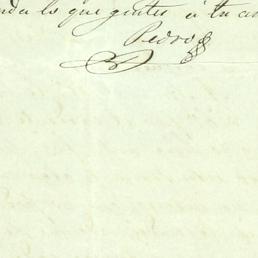 nda lo que gustes á tu am
Pedro